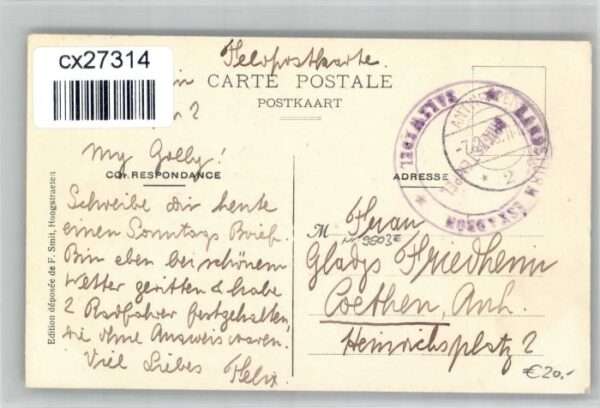 cx27314
Feldpostkarte.
CARTE POSTALE
POSTKAART
My Golly!
CORRESPONDANCE
Schreibe dir heute
einen Sonntags Brief.
Bin eben bei schönem
Wetter geritten & habe
2 Radfahrer festgehalten,
die ohne Ausweis waren.
Viel Liebes Felix.
Edition déposée de F. Smit, Hoogstraeten
LANDSTURM ESKADRON
SALZWEDEL
2
ADRESSE
M Frau
Gladys Friedheim
Coethen, Anh.
Heinrichsplatz 2
€20.-